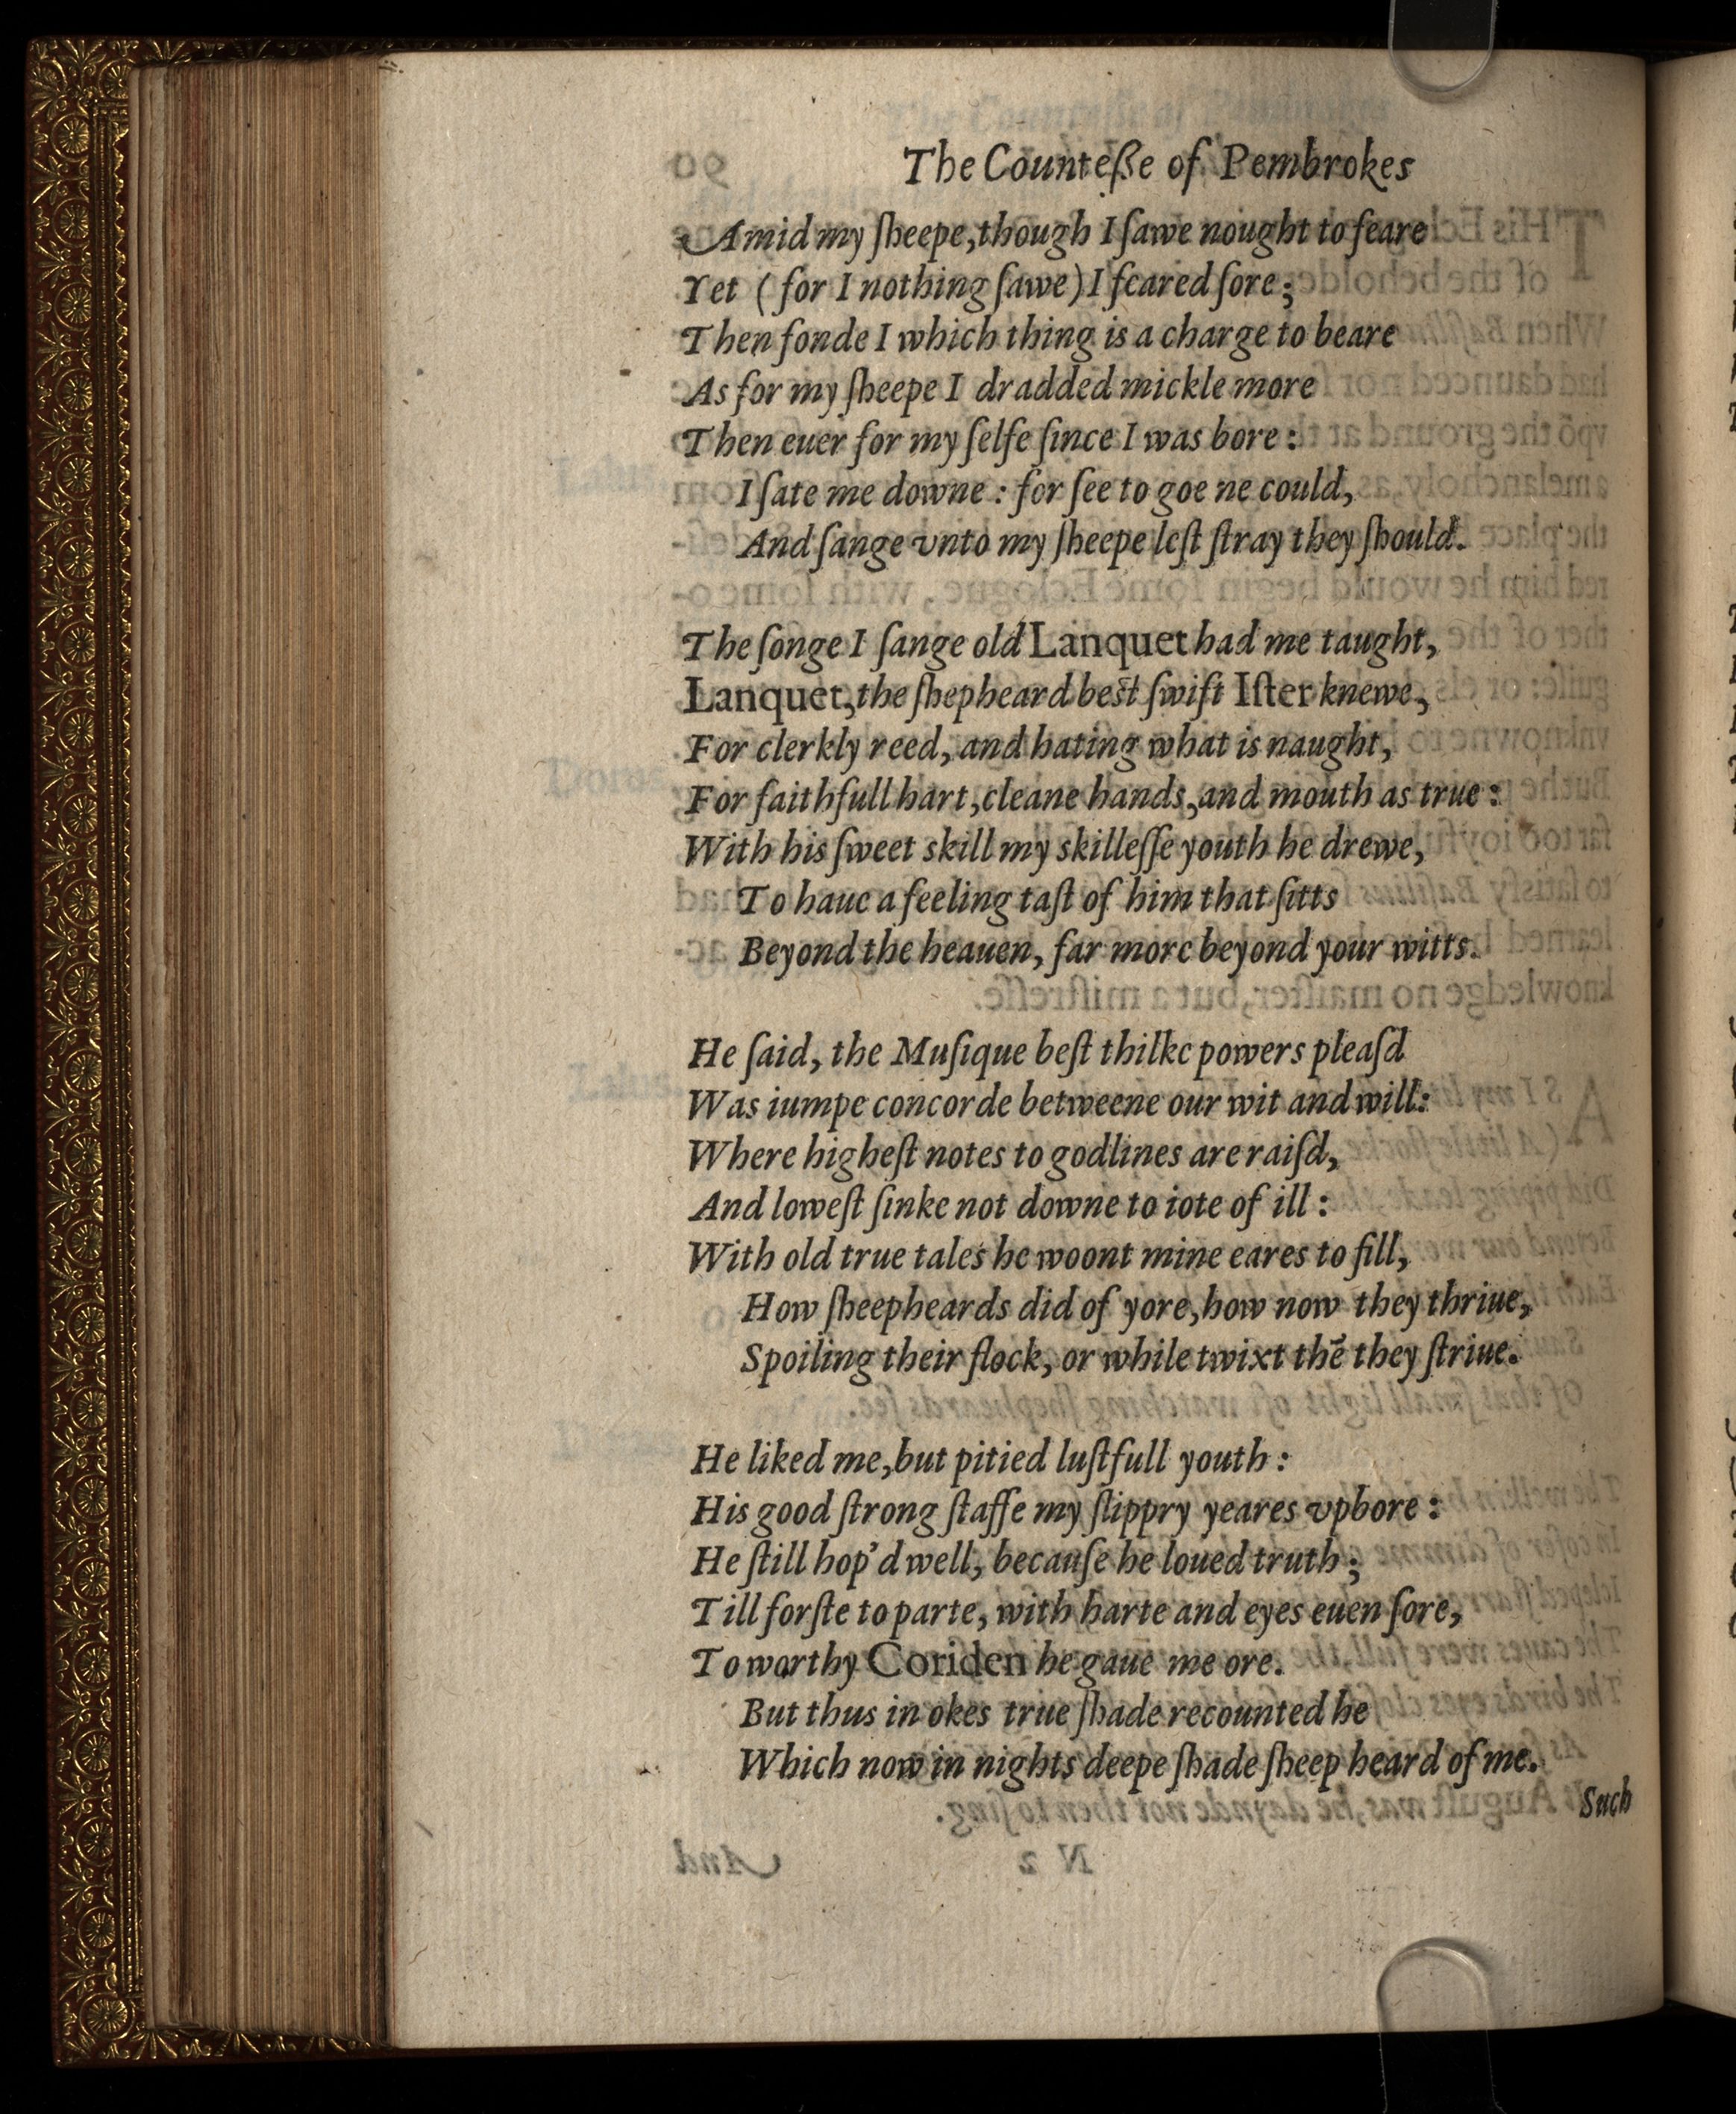 The Counteße of Pembrokes
Amid my ſheepe, though I ſawe nought to feare
Yet (for I nothing ſawe) I feared ſore;
Then fonde I which thing is a charge to beare
As for my ſheepe I dradded mickle more
Then euer for my ſelfe ſince I was bore:
I ſate me downe: for ſee to goe ne could,
And ſange vnto my ſheepe leſt ſtray they ſhould.
The ſonge I ſange old Lanquet had me taught,
Lanquet, the ſhepheard beſt ſwift Iſter knewe,
For clerkly reed, and hating what is naught,
For faithfull hart, cleane hands, and mouth as true:
With his ſweet skill my skilleſſe youth he drewe,
To haue a feeling taſt of him that ſitts
Beyond the heauen, far more beyond your witts.
He ſaid, the Muſique beſt thilke powers pleaſd
Was iumpe concorde betweene our wit and will:
Where higheſt notes to godlines are raiſd,
And loweſt ſinke not downe to iote of ill:
With old true tales he woont mine eares to fill,
How ſheepheards did of yore, how now they thriue,
Spoiling their flock, or while twixt thē they ſtriue.
He liked me, but pitied luſtfull youth:
His good ſtrong ſtaffe my ſlippry yeares vpbore:
He ſtill hop'd well, becauſe he loued truth;
Till forſte to parte, with harte and eyes euen ſore,
To worthy Coriden he gaue me ore.
But thus in okes true ſhade recounted he
Which now in nights deepe ſhade ſheep heard of me.
Such